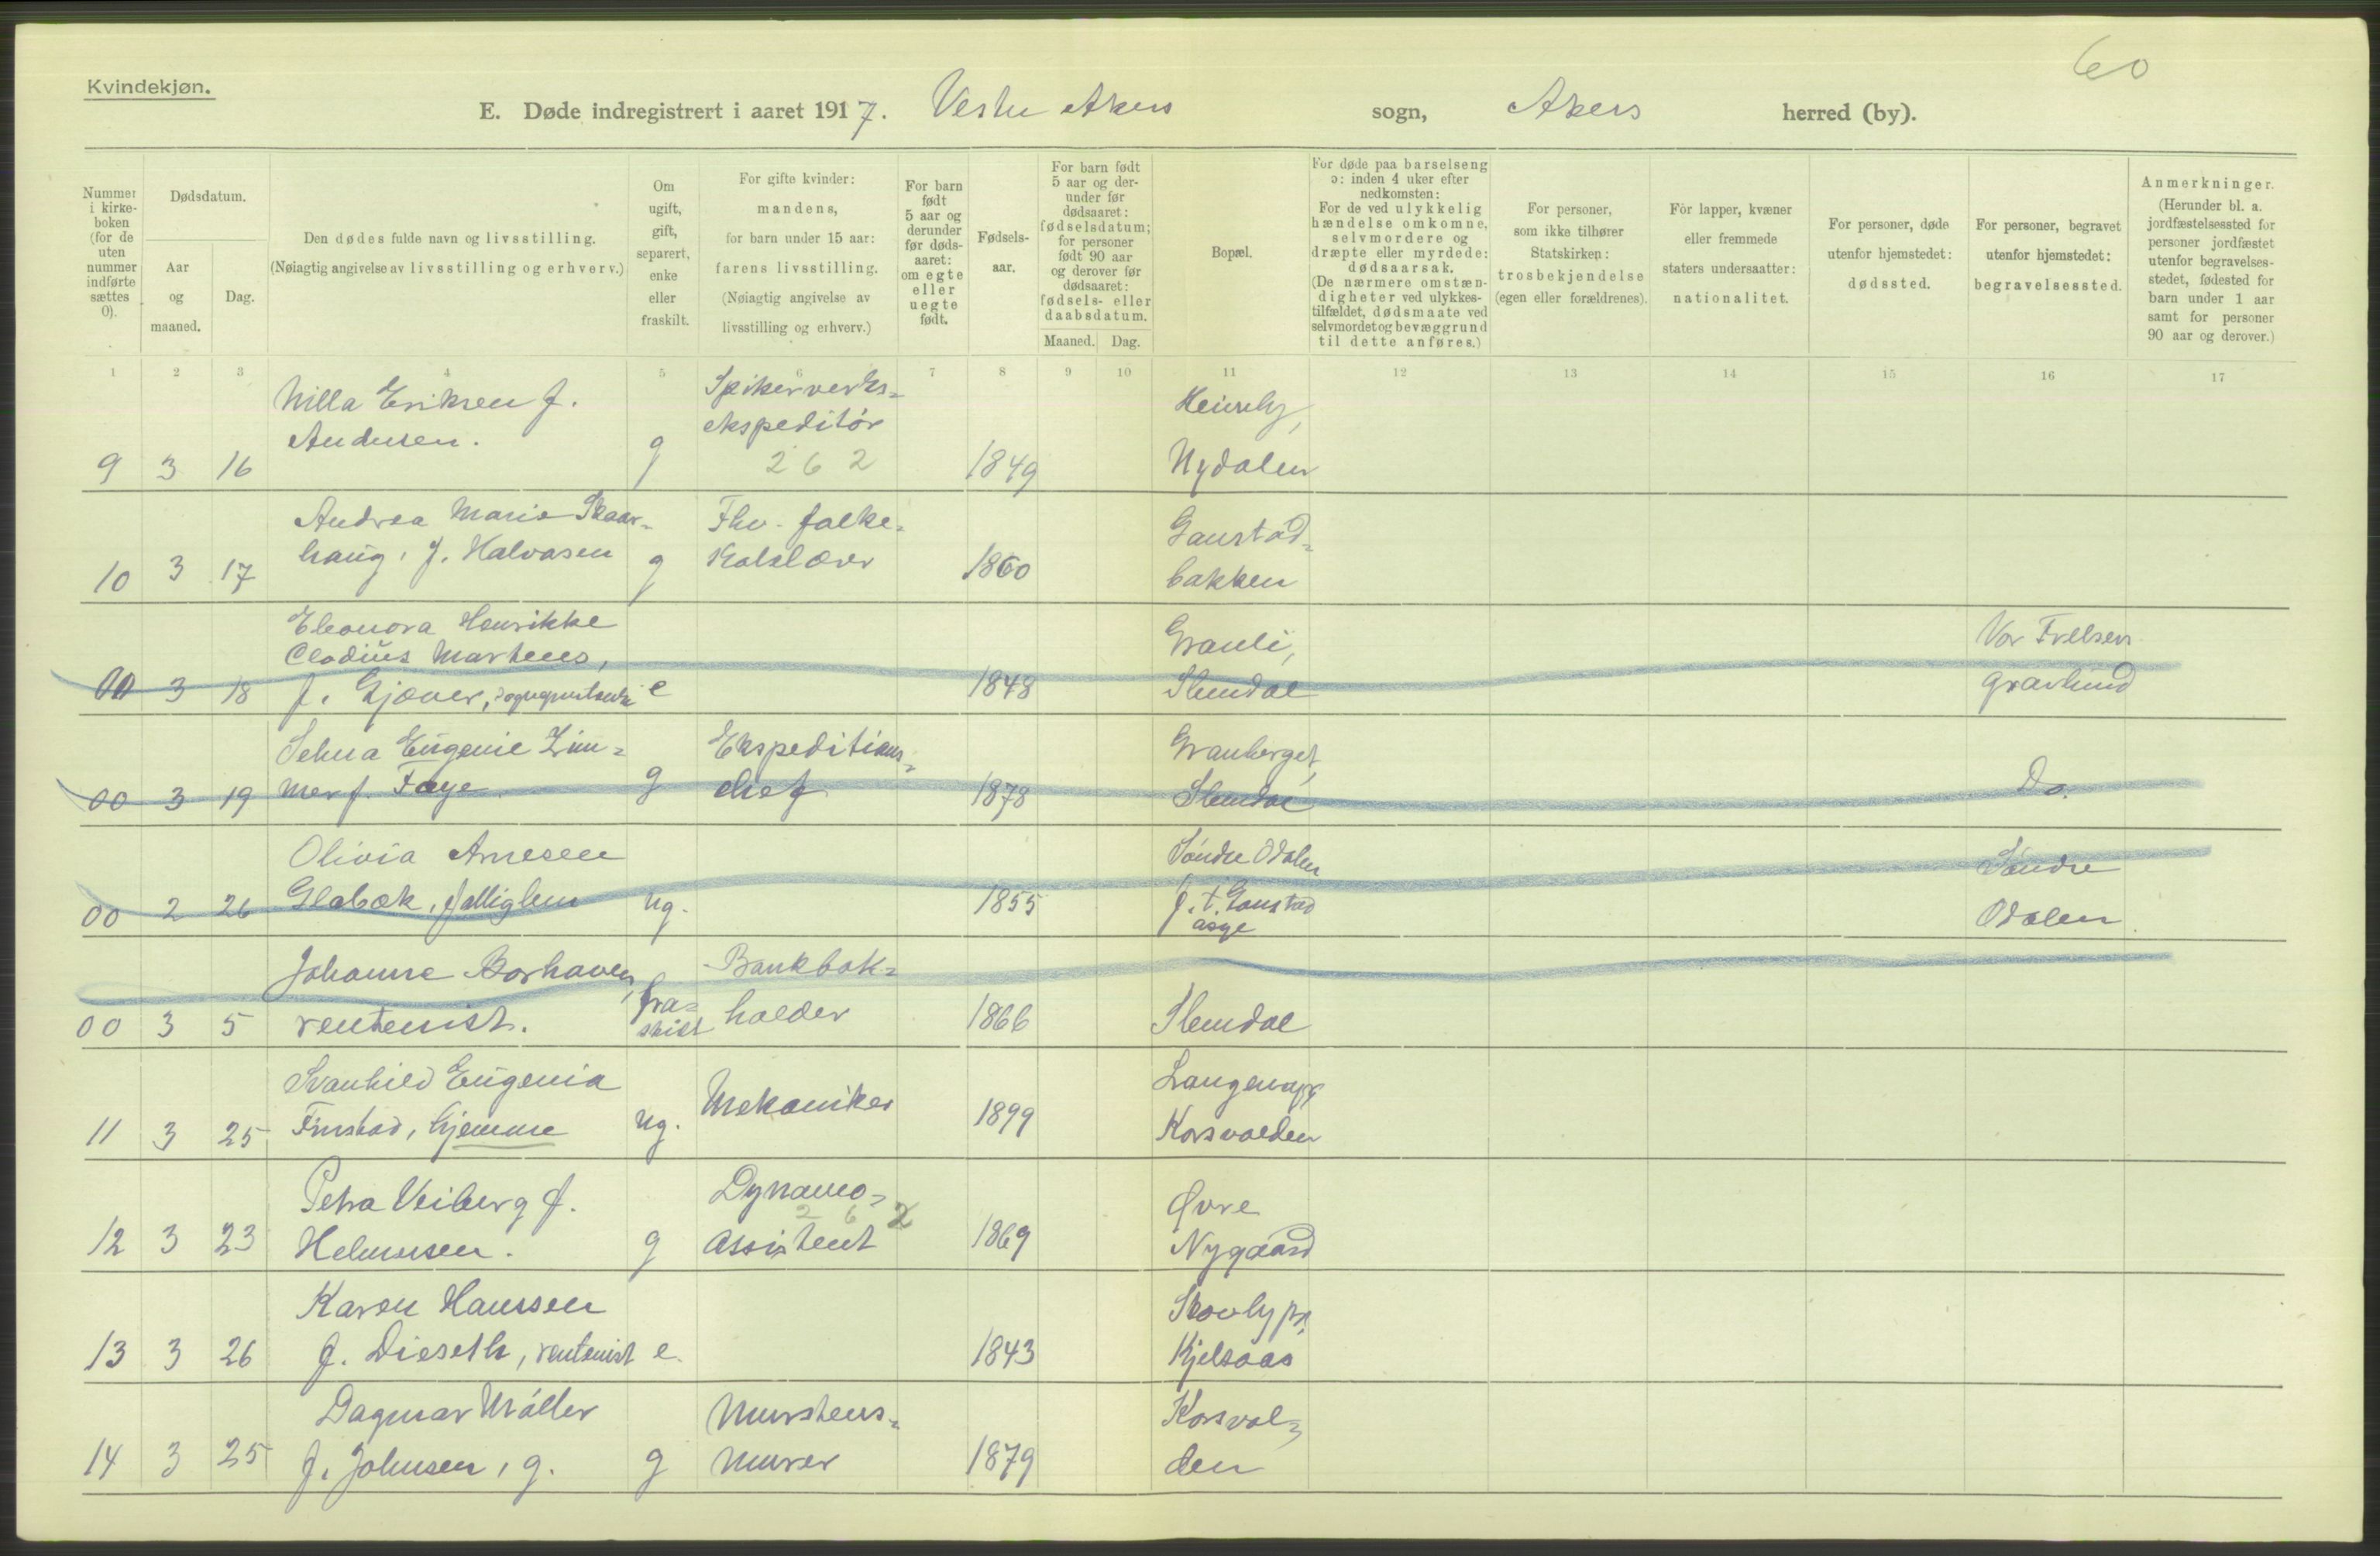 60
Kvindekjøn.
E. Døde indregistrert i aaret 1917. Vestre Akers sogn, Akers herred (by).
Nummer i kirke-boken (for de uten nummer indførte sættes 0).
Dødsdatum.
Aar og maaned.
Dag.
Den dødes fulde navn og livsstilling.
(Nøiagtig angivelse av livsstilling og erhverv.)
Om ugift, gift, separert, enke eller fraskilt.
For gifte kvinder: mandens, for barn under 15 aar: farens livsstilling. (Nøiagtig angivelse av livsstilling og erhverv.)
For barn født 5 aar og derunder før døds-aaret: om egte eller uegte født.
Fødsels-aar.
For barn født 5 aar og der-under før dødsaaret: fødselsdatum; for personer født 90 aar og derover før dødsaaret: fødsels- eller daabsdatum.
Maaned. Dag.
Bopæl.
For døde paa barselseng ɔ: inden 4 uker efter nedkomsten: For de ved ulykkelig hændelse omkomne, selvmordere og dræpte eller myrdede: dødsaarsak. (De nærmere omstæn-digheter ved ulykkes-tilfældet, dødsmaate ved selvmordet og bevæggrund til dette anføres.)
For personer, som ikke tilhører Statskirken: trosbekjendelse (egen eller forældrenes).
For lapper, kvæner eller fremmede staters undersaatter: nationalitet.
For personer, døde utenfor hjemstedet: dødssted.
For personer, begravet utenfor hjemstedet: begravelsessted.
Anmerkninger. (Herunder bl. a. jordfæstelsessted for personer jordfæstet utenfor begravelses-stedet, fødested for barn under 1 aar samt for personer 90 aar og derover.)
1 2 3 4 5 6 7 8 9 10 11 12 13 14 15 16 17
Milla Eriksen f. Spikerverks-
Andersen. ekspeditör
9 3 16 g 262 1849 Nydalen
Andrea Marie Skaar- Fhv. falke- Gaustad-
haug, f. Halvasen
10 3 17 g 1860 bakken
Eleonora Henrikke Granli, Vor Frelsers
Clodius Martens,
00 3 18 f. Gjæver, e 1848 Slemdal gravlund
Selma Eugenie Zim- Ekspeditions- Granberget,
00 3 19 mer f. Faye g chef 1878 Slemdal Do.
Olivia Arnesen Söndre Odalen Söndre
00 2 26 Glabæk, fattiglem ug. 1855 f. t. Gaustad asyl Odalen
Johanne Borhaven, Bankbok-
00 3 5 rentenist. fra-skilt holder 1866 Slemdal
Svanhild Eugenia
11 3 25 Finstad, hjemme ug. Mekaniker 1899 Korsvolden
Petra Veiberg f. Dynamo- Øvre
12 3 23 Helmersen. g assistent 262 1869 Nygaard
Karen Hanssen Skovly pr,
13 3 26 f. Dieseth, rentenist e. 1843 Kjelsaas
Dagmar Möller Murstens- Korsvol-
14 3 25 f. Johnsen, g. g murer 1879 den